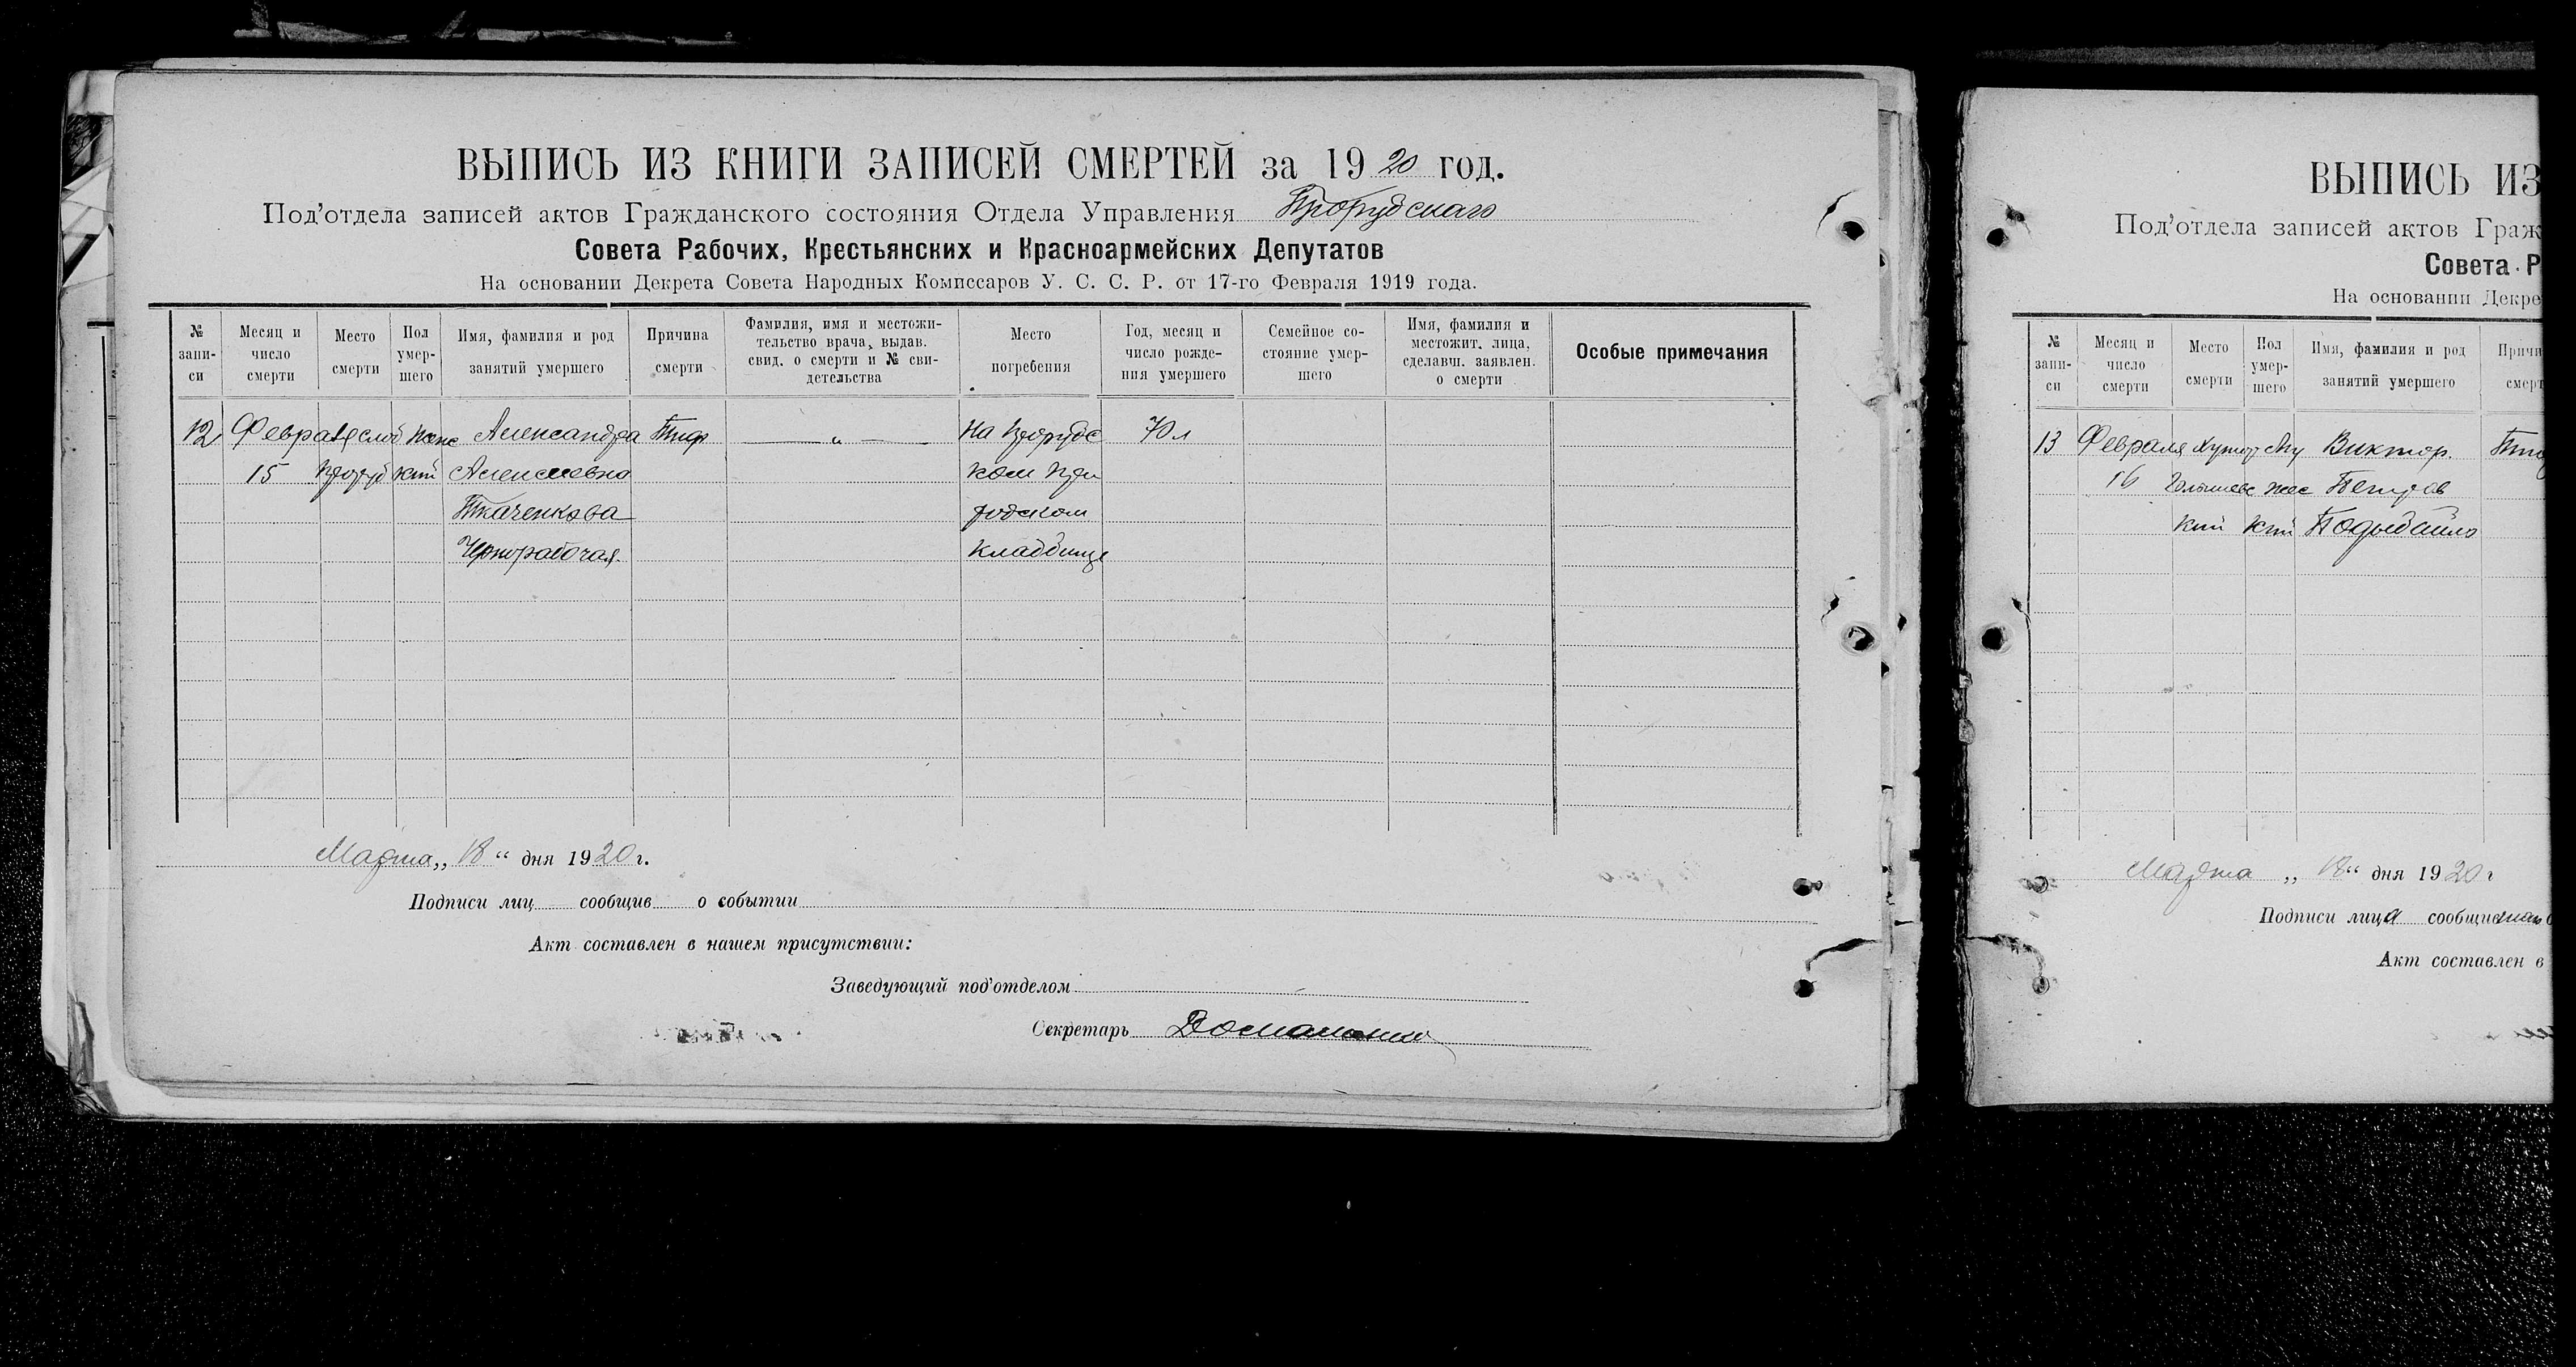 ВЫПИСЬ ИЗ КНИГИ ЗАПИСЕЙ СМЕРТЕЙ за 1920 год.
Под'отдела записей актов Гражданского состояния Отдела Управления Прорубскаго
Совета Рабочих, Крестьянских и Красноармейских Депутатов
На основании Декрета Совета Народных Комиссаров У. С. С. Р. от 17-го Февраля 1919 года.
№ запи-си
Месяц и число смерти
Место смерти
Пол умер-шего
Имя, фамилия и род занятий умершего
Причина смерти
Фамилия, имя и местожи-тельство врача, выдав. свид. о смерти и № сви-детельства
Место погребения
Год, месяц и число рожде-ния умершего
Семейное со-стояние умер-шего
Имя, фамилия и местожит. лица, сделавш. заявлен. о смерти
Особые примечания
12 Февраля слоб Женс Александра Тиф — „ — На Прорубс 70 л
15 Проруб кий Алексеевна ком
Ткаченкова
Чернорабочая. кладбище
Марта „ 18 “ дня 1920 г.
Подписи лиц сообщив о событии
Акт составлен в нашем присутствии:
Заведующий под'отделом
Секретарь
ВЫПИСЬ ИЗ
Под'отдела записей актов Граж
Совета Р
На основании Декре
№ запи-си
Месяц и число смерти
Место смерти
Пол умер-шего
Имя, фамилия и род занятий умершего
Причи смерт
13 Февраля Хутор Му Виктор.
16 жес Петров
кий кий
Марта „ 18 “ дня 1920 г
Подписи лица сообщи
Акт составлен в